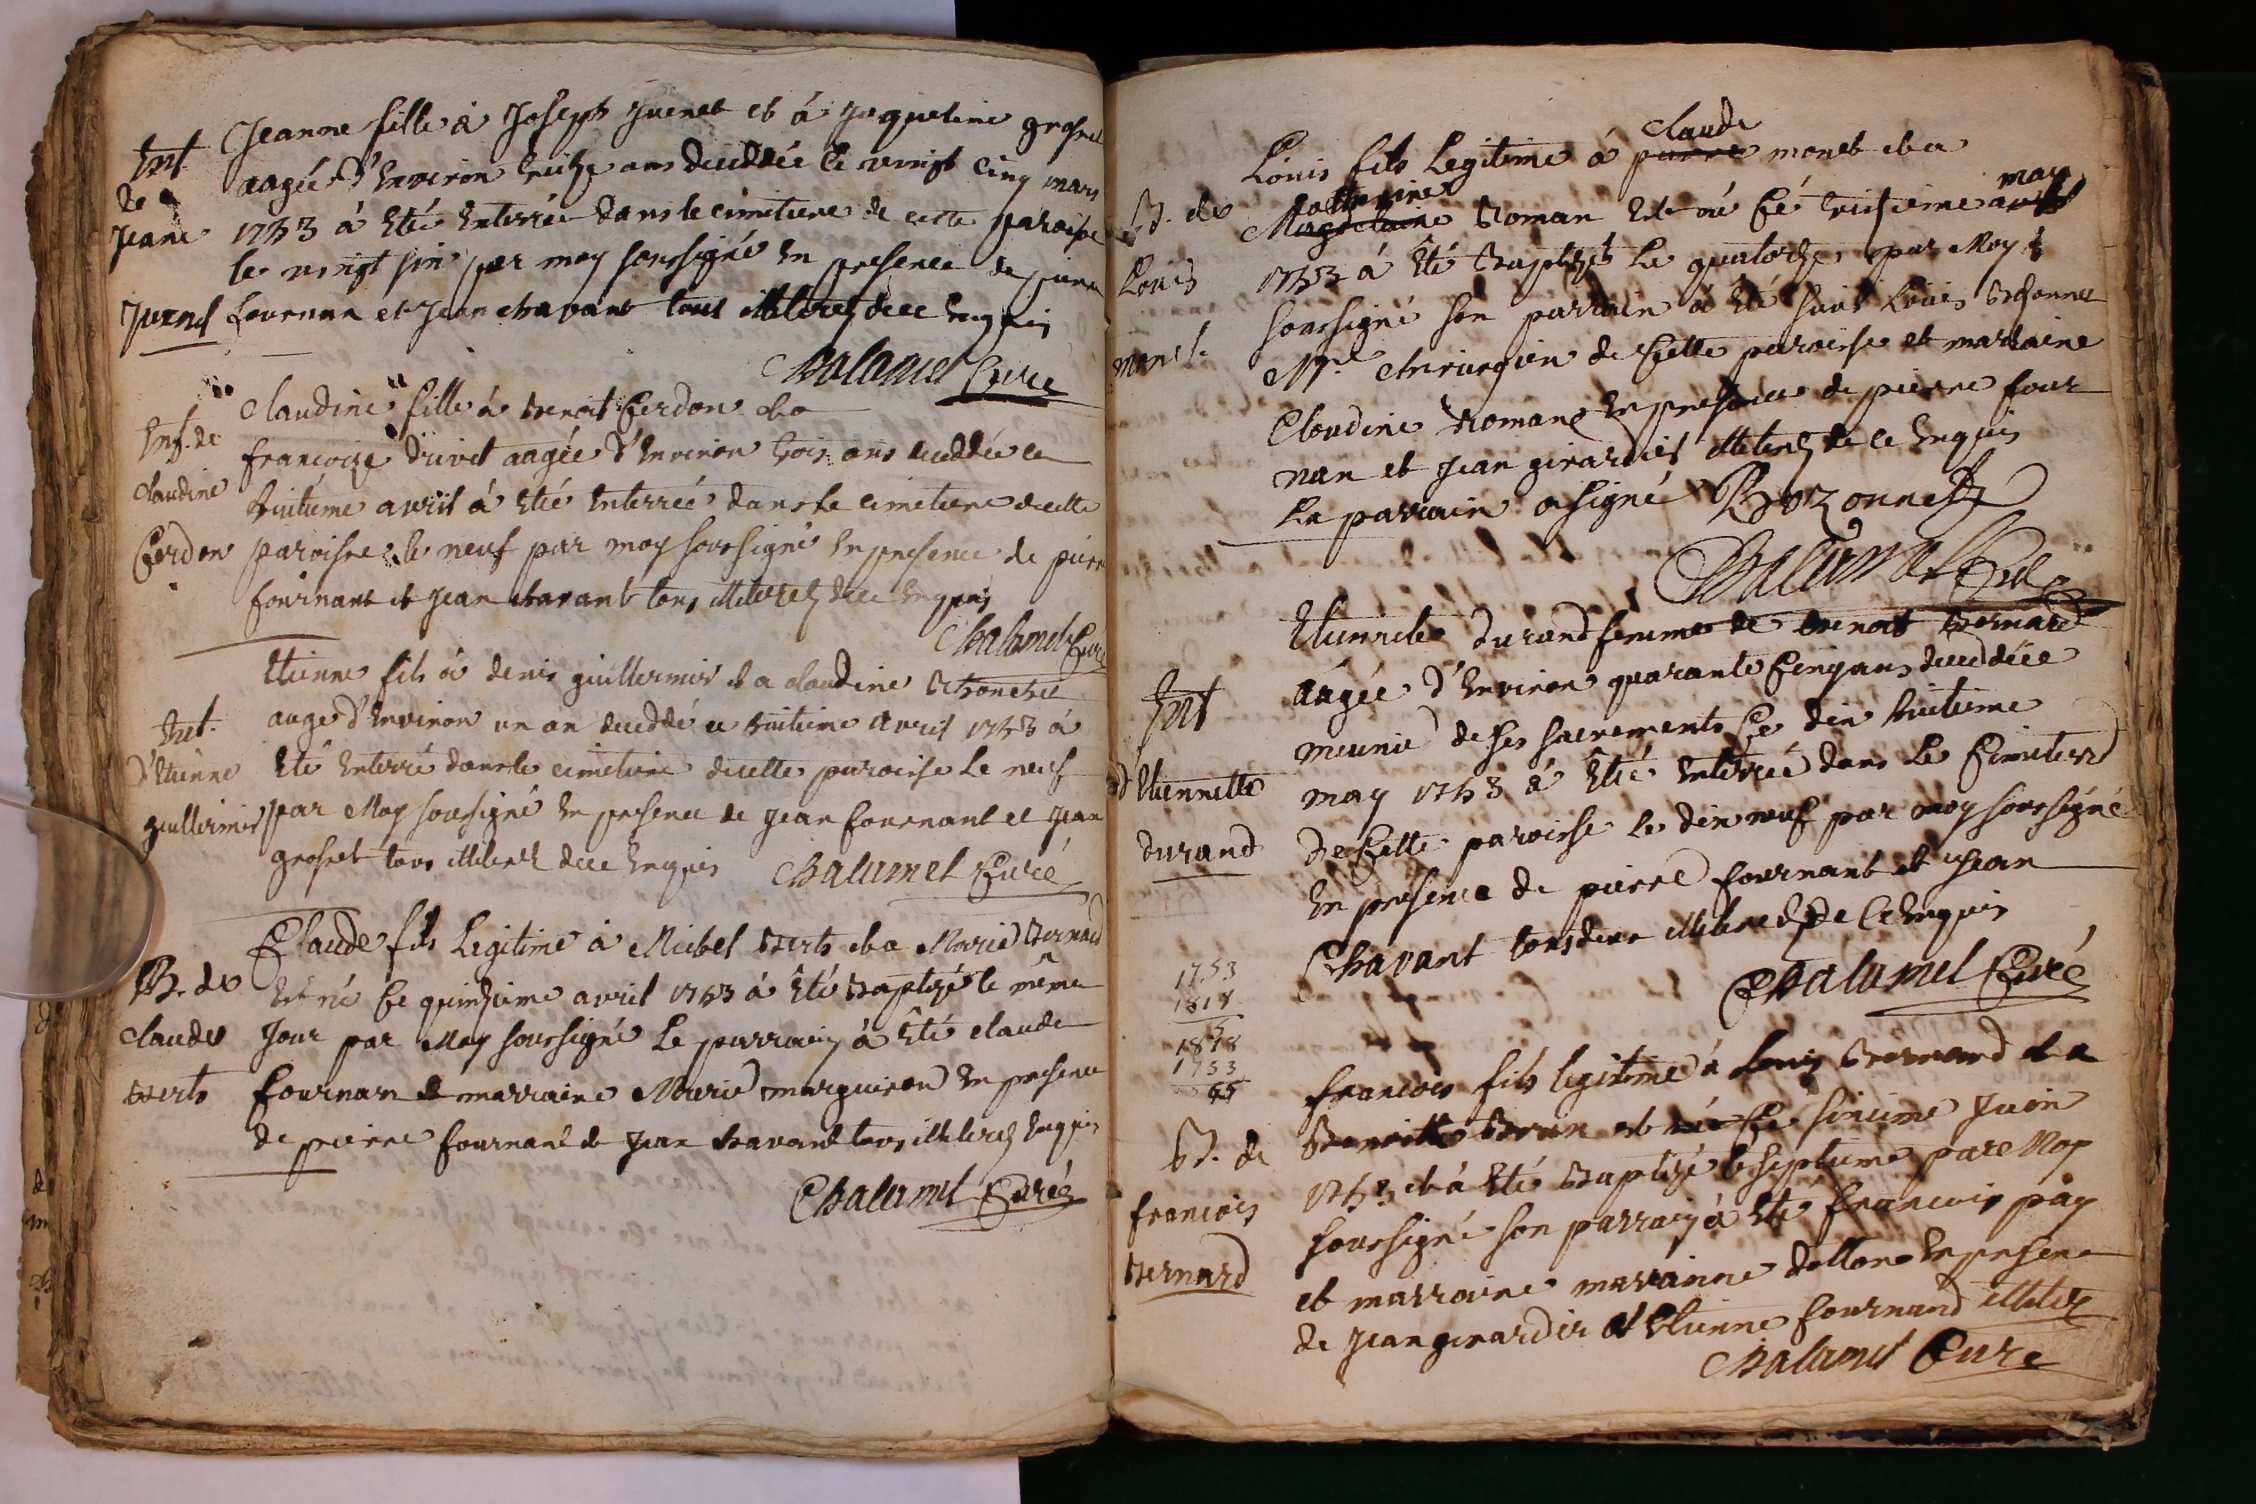 Ent
de
Jeane
Juenel
Jeanne fille à Joseph Juenet et à Jaqueline grosnel
aagée d'Environ treitze ans deceddée le vingt cinq mars
1753 à Eté Enterrée dans le cimetiere de cette paroisse
le vingt six par moy soussigné En presence de pierre
fournan et Jean chavant tous illiterez dece Enquis
Chalamel Curé
Ent. de
claudine
Cerdon
claudine fille à benoit Cerdon et a
francoize drivet aagée d'Environ trois ans deceddée le
huitiéme avril à Eté Enterrée dans le cimetiere decette
paroisse le neuf par moy soussigné En presence de pierre
fournant et Jean chavant tous illiterez dece Enquis
Chalamel Curé
Ent.
d'Etienne
guillermin
Etienne fils à denis guillermin et a claudine
aage d'Environ un an deceddé ce huitieme avril 1753 à
Eté Enterré dans le cimetiere decette paroisse Le neuf
par Moy soussigné En presence de Jean fournant et Jean
grosnet tous illiterez dece Enquis Chalumel Curé
B. de
claude
berts
Claude fils Legitime à Michel berts et a Marie Bernard
Est né Ce quinzieme avril 1753 à Eté Baptizé le même
Jour par Moy soussigné Le parrain à Eté claude
fournan et marraine Marie marguiron En presence
de pierre fournant et Jean chavant tous illiterez Enquis
Chalumel Curé
B. de
Louis
monet
claude
Louis fils Legitime à pierre monet et a
Catherine may
Magdelaine Roman Est né Ce treizieme avril
1753 à Eté Baptizé Le quatorze par Moy
soussigné son parrain à Eté sieur Louis Bozonnet
Mre. chirurgien de Cette paroisse et marraine
Claudine Romane En presence de pierre four
nan et Jean girardier illiterez de ce Enquis
Le parrain a signé Bozonnet
Chalumel Curé
Ent
d'Etiennette
durand
Etiennette durand femme de benoit Bernard
aagée d'Environ quarante Cinq ans deceddée
munie de ses sacrements Ce dix huitieme
may 1753 à Eté Enterrée dans Le Cimetiere
de Cette paroisse le dix neuf par moy soussigné
En presence de pierre fournant et Jean
Chavant tous deux illiterez de Ce Enquis
Chalumel Curé
1753
1818
1818
1753
65
B. de
francois
Bernard
francois fils legitime à Louis Bernard et a
Benoitte Brun est née Ce sixieme Juin
1753 et à Eté Baptizé le septieme par Moy
soussigné son parrain à Eté francois pay
et marraine marianne dellone En presence
de Jean girardier et Etienne fournand illiterez
Chalumel Curé